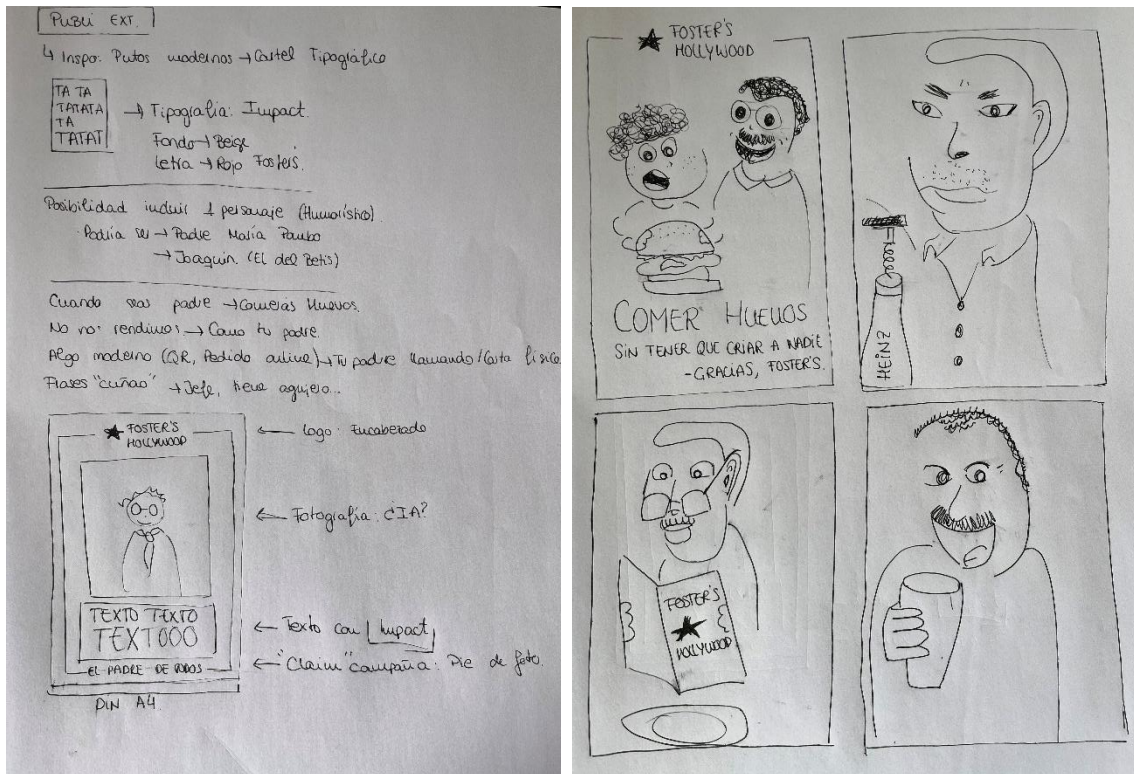 PUBLI EXT.
↳ Inspo: Putos modernos → Cartel Tipográfico
TA TA
TATATA
TA
TATAT
→ Tipografía: Impact.
Fondo → Beige
Letra → Rojo Fosters.
Posibilidad incluir 1 personaje (Humorístico).
Podría ser → Padre María Pombo
→ Joaquin. (El del Betis)
Cuando seas padre → Comerás Huevos.
No nos rendimos → Como tu padre.
Algo moderno (QR, Pedido online) → Tu padre llamando / Carta física
Frases "cuñao" → Jefe, tiene agujero...
FOSTER'S
HOLLYWOOD
← Logo: Encabezado
← Fotografía: ¿IA?
TEXTO TEXTO
TEXTOOO
← Texto con Impact
EL PADRE DE TODOS
← "Claim" campaña: Pie de foto.
DIN A4
FOSTER'S
HOLLYWOOD
COMER HUEVOS
SIN TENER QUE CRIAR A NADIE
-GRACIAS, FOSTER'S.
HEINZ
FOSTER'S
HOLLYWOOD